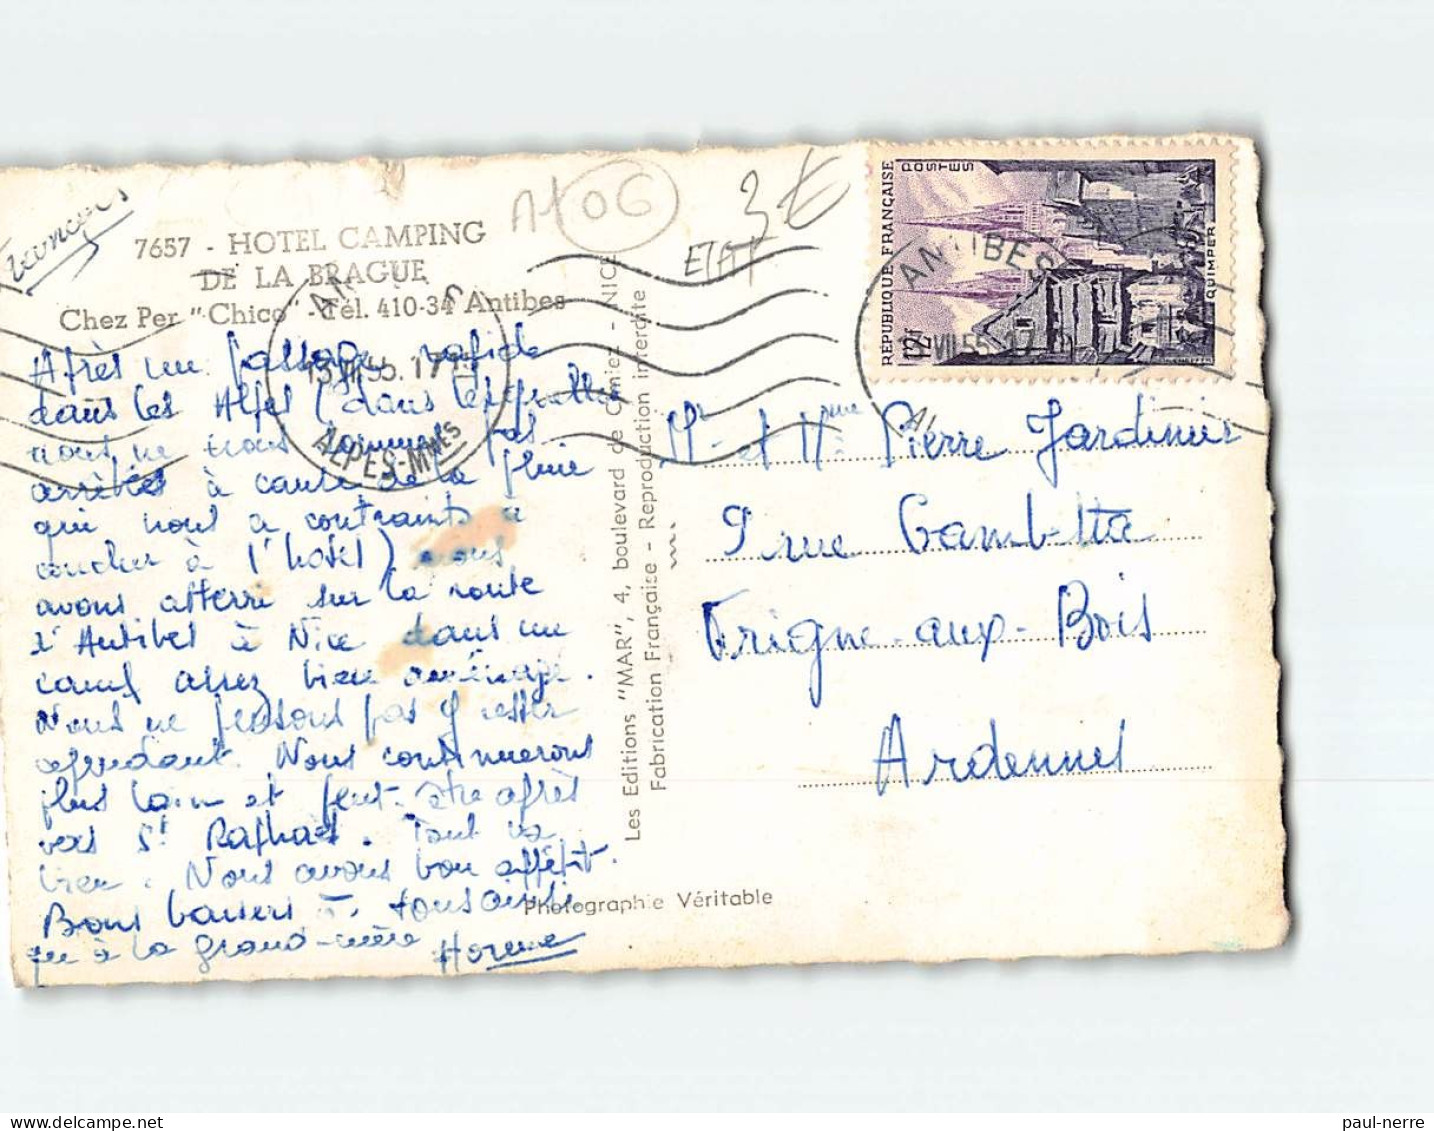 François
7657 - HOTEL CAMPING
DE LA BRAGUE
Chez Per "Chico" - Tél. 410-34 Antibes
06
3€
ETAT
RÉPUBLIQUE FRANÇAISE
POSTES
12f
QUIMPER
ANTIBES
13 VII 55. 17
ALPES-MMES
Après un passage rapide
dans les Alpes (dans lesquelles
nous ne nous sommes pas
arrêtés à cause de la pluie
qui nous a contraints à
coucher à l'hôtel) nous
avons atterri sur la route
d'Antibes à Nice dans un
camp assez bien aménagé.
Nous ne pensons pas y rester
cependant. Nous continuerons
plus loin et peut-être après
vers St Raphaël. Tout va
bien. Nous avons bon appétit.
Bons baisers à tous ainsi
qu'à la grand-mère
Les Editions "MAR", 4, boulevard de Cimiez - NICE
Fabrication Française - Reproduction interdite
Photographie Véritable
Mr et Mme Pierre Jardinier
9 rue Gambetta
Vrigne-aux-Bois
Ardennes
paul-nerre